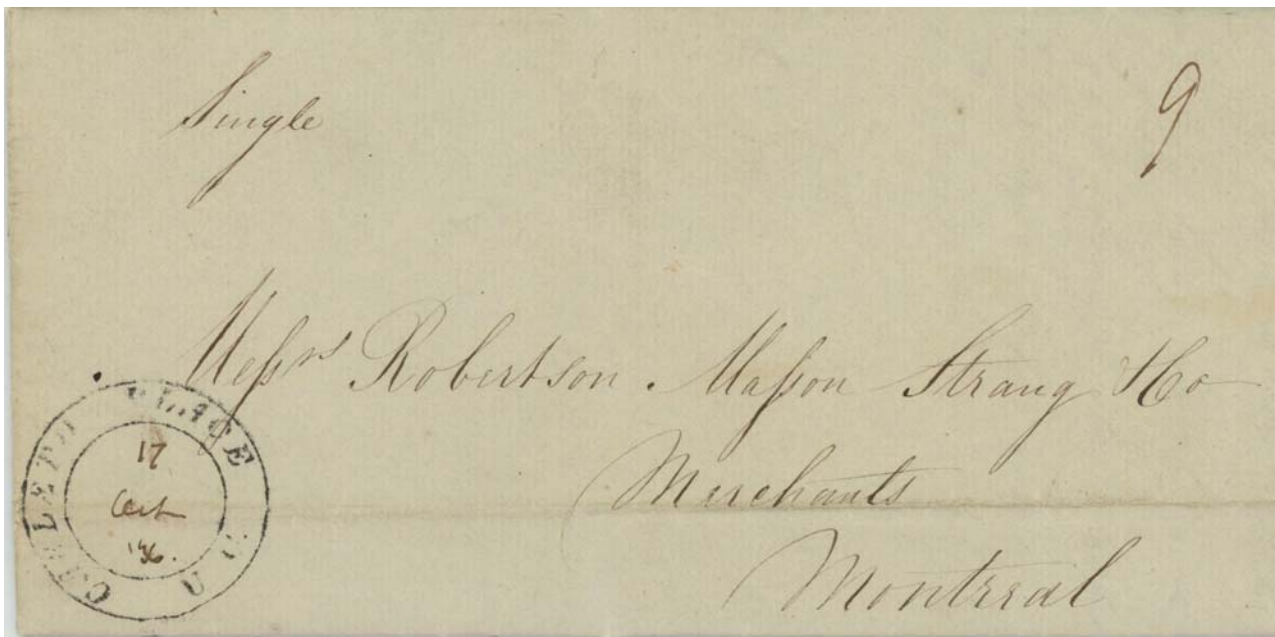 Single
9
Messrs Robertson. Masson Strang & Co
Merchants
Montreal
PLACE
U C
17
Oct